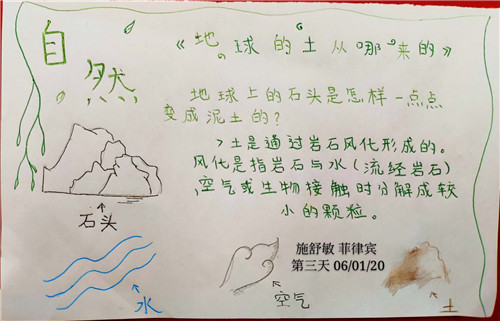 自然
《地球的土从哪来的》
地球上的石头是怎样一点点
变成泥土的?
>土是通过岩石风化形成的。
风化是指岩石与水(流经岩石)
,空气或生物接触时分解成较
小的颗粒。
石头
施舒敏 菲律宾
第三天 06/01/20
水
空气
土